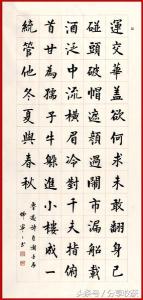 運交華蓋欲何求未敢翻身已
碰頭破帽遮顏過鬧市漏船載
酒泛中流橫眉冷對千夫指俯
首甘為孺子牛躲進小樓成一
統管他冬夏與春秋
魯迅詩自嘲